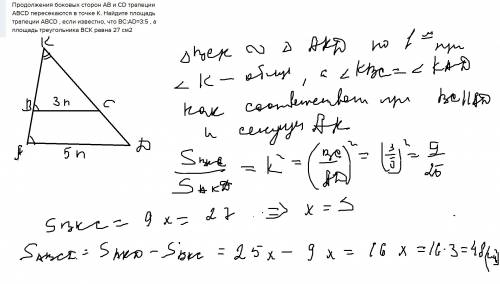 Продолжения боковых сторон AB и CD трапеции
ABCD пересекаются в точке K. Найдите площадь
трапеции ABCD , если известно, что BC:AD=3:5 , а
площадь треугольника BCK равна 27 см2
K
B 3n C
A 5n D
△ BCK ∾ △ AKD по 1 = пр
∠ K – общий, а ∠ KBC = ∠ KAD
как соответств при BC || AD
и секущей AK
S BKC / S AKD = K² = (BC/AD)² = (3/5)² = 9/25
S BKC = 9x = 27 => x = 3
S ABCD = S AKD – S BKC = 25x – 9x = 16x = 16·3 = 48